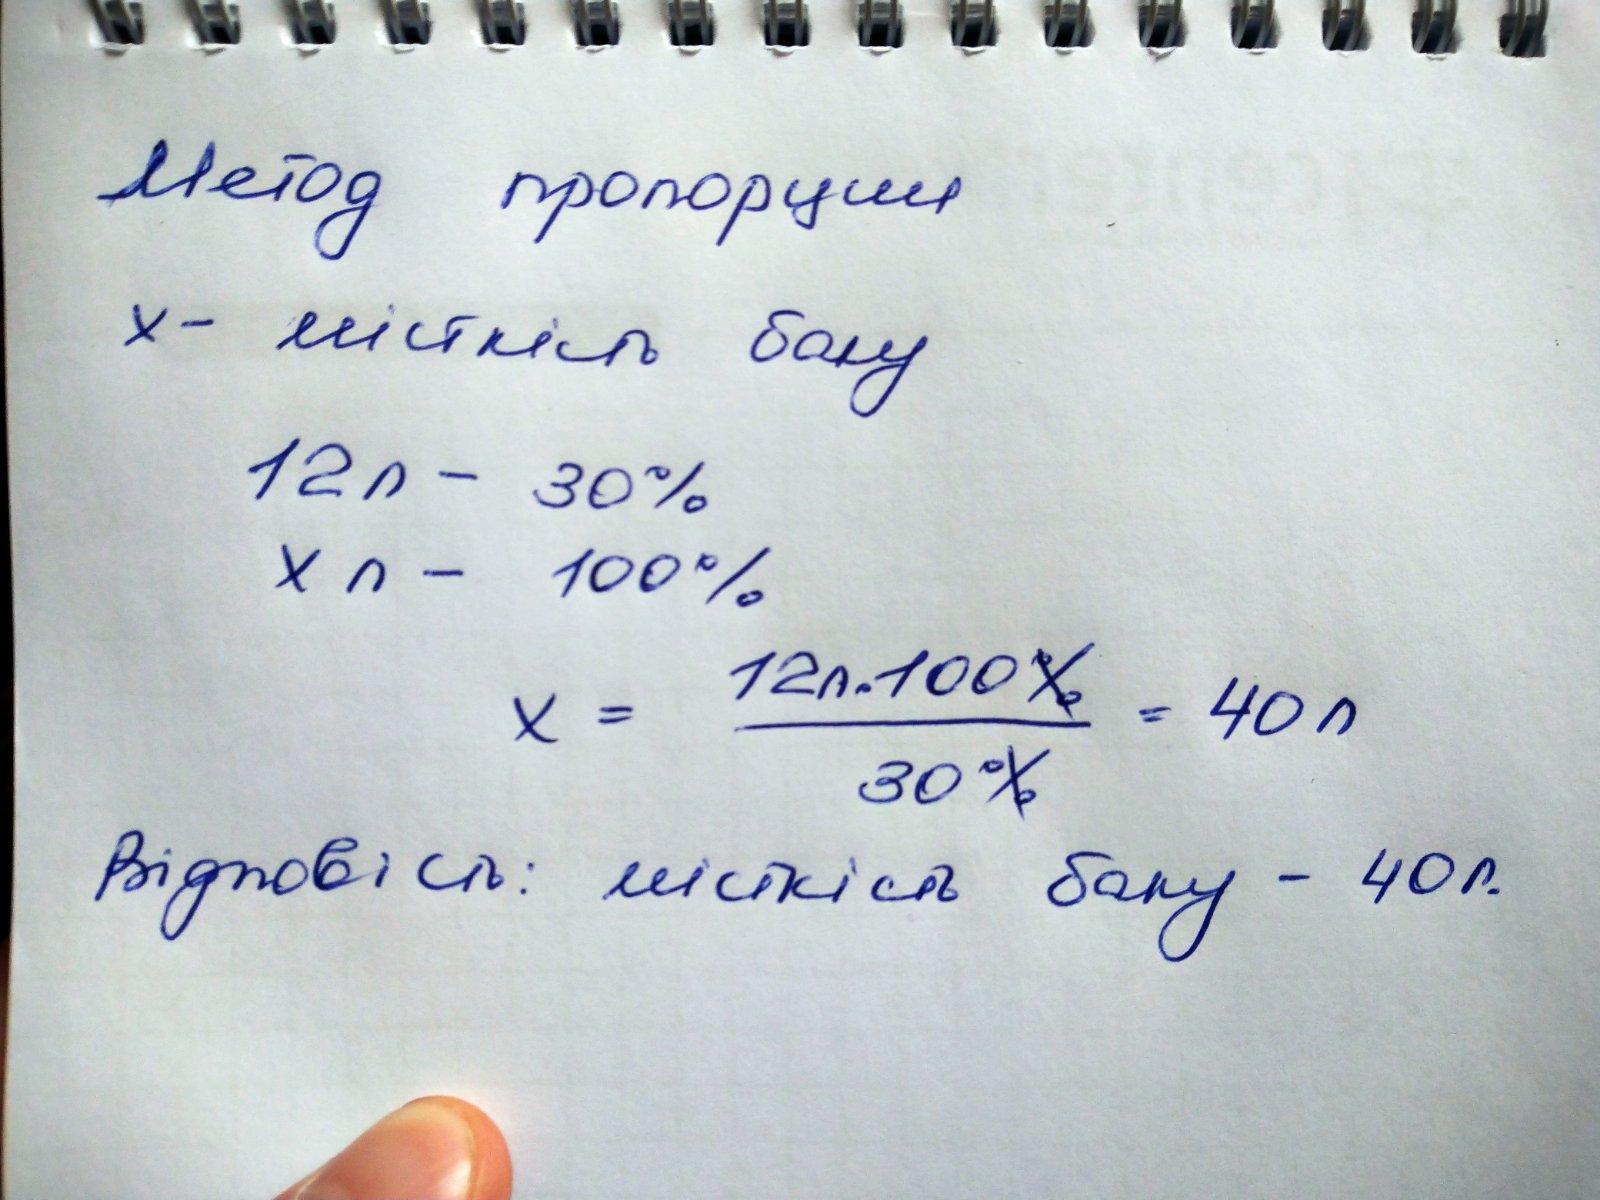 Метод пропорции
x - місткість баку
12л - 30%
x л - 100%
x = 12л.100% / 30% = 40л
Відповість: місткість баку - 40л.